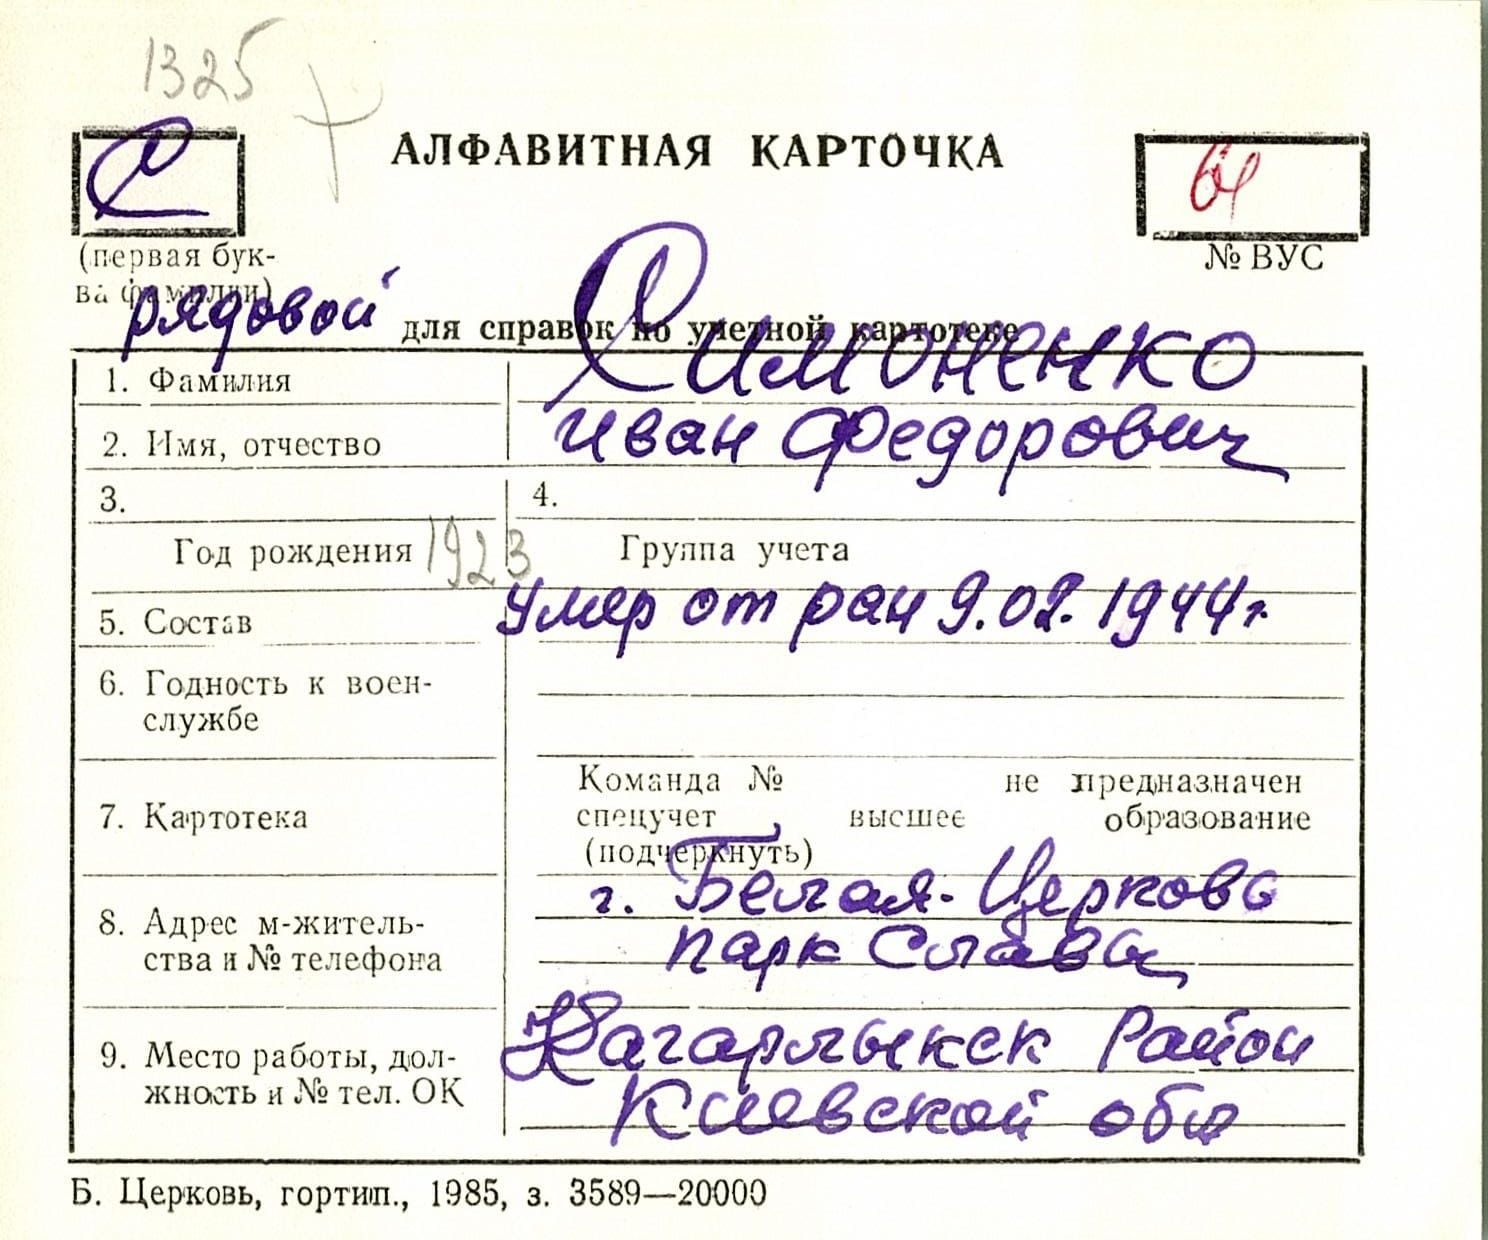 1325
С
АЛФАВИТНАЯ КАРТОЧКА
(первая бук-
ва фамилии)
№ ВУС
рядовой
для справок по учетной картотеке
1. Фамилия Симоненко
2. Имя, отчество Иван Федорович
3. 4.
Год рождения 1923 Группа учета
5. Состав умер от ран 9.02.1944г.
6. Годность к воен-
службе
Команда № не предназначен
7. Картотека спецучет высшее образование
(подчеркнуть)
г. Белая-Церковь
8. Адрес м-житель-
ства и № телефона
парк Славы
Кагарлыкск район
9. Место работы, дол-
жность и № тел. ОК
Киевской обл
Б. Церковь, гортип., 1985, з. 3589—20000